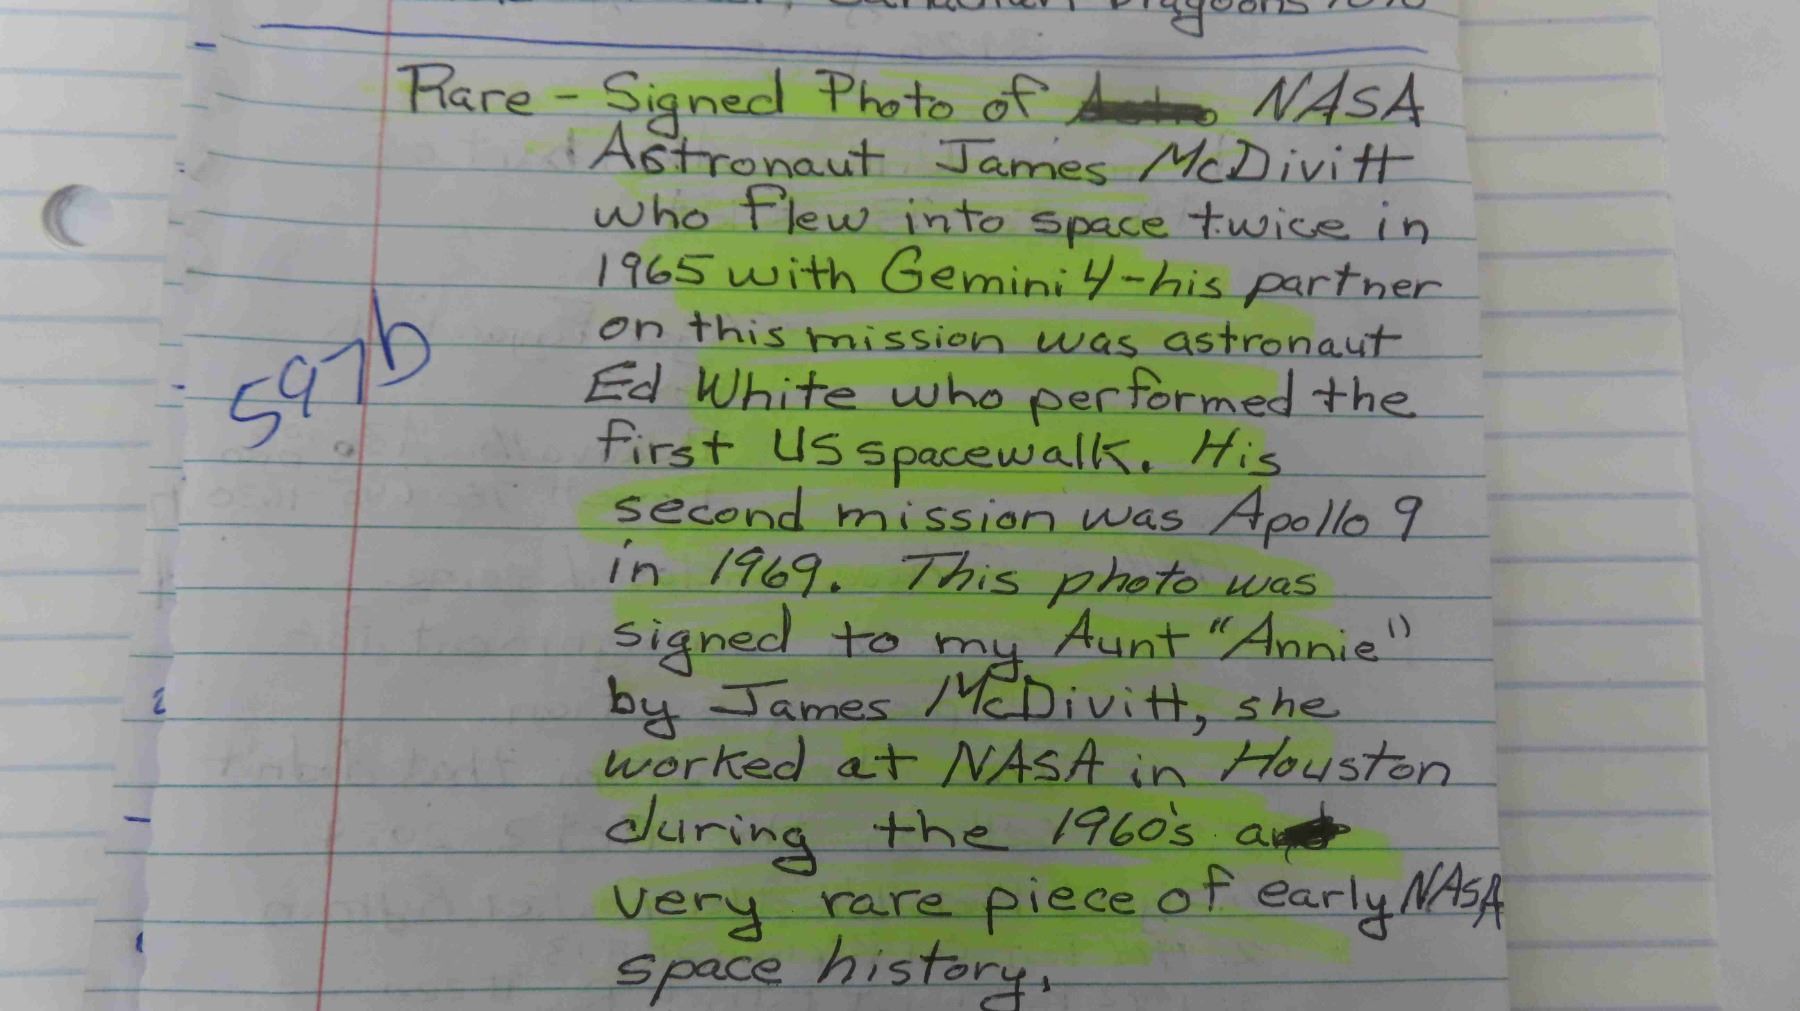 Rare - Signed Photo of NASA
Astronaut James McDivitt
who flew into space twice in
1965 with Gemini 4 - his partner
on this mission was astronaut
597b
Ed White who performed the
first US spacewalk. His
second mission was Apollo 9
in 1969. This photo was
signed to my Aunt "Annie"
by James McDivitt, she
worked at NASA in Houston
during the 1960's a
very rare piece of early NASA
space history.